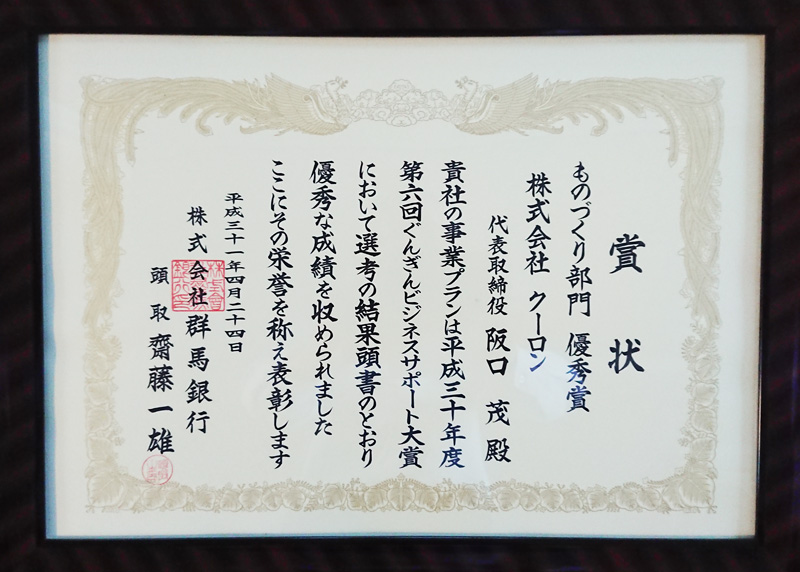 賞状
ものづくり部門 優秀賞
株式会社 クーロン
代表取締役 阪口 茂 殿
貴社の事業プランは平成三十年度
第六回ぐんぎんビジネスサポート大賞
において選考の結果頭書のとおり
優秀な成績を収められました
ここにその栄誉を称え表彰します
平成三十一年四月二十四日
株式会社群馬銀行
頭取 齋藤一雄